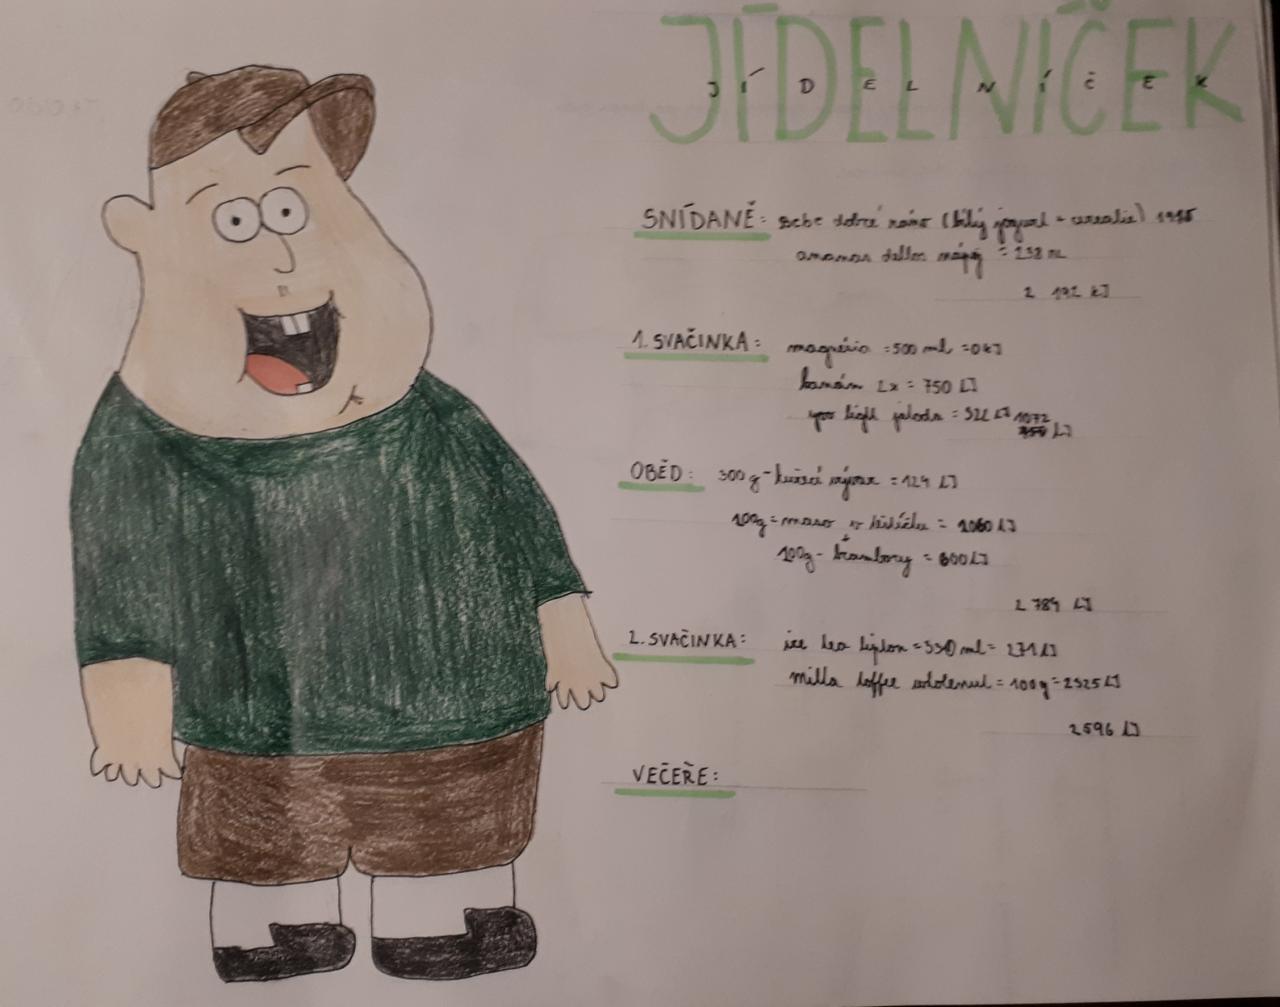 JÍDELNÍČEK
JÍDELNÍČEK
SNÍDANĚ: Bebe dobré ráno (bílý jogurt + cerealie) 1955
ananas dellos nápoj = 238 ml
2 192 kJ
1. SVAČINKA: magnésia = 500 ml = 0 kJ
banán 2x = 750 kJ
light jahoda = 322 kJ 1072
kJ
OBĚD: 300g - kuřecí vývar = 124 kJ
100g = maso v = 2060 kJ
+
100g - brambory = 600 kJ
2 784 kJ
2. SVAČINKA: ice tea lipton = 330 ml = 271 kJ
milka toffee wholenut = 100g = 2325 kJ
2596 kJ
VEČEŘE: